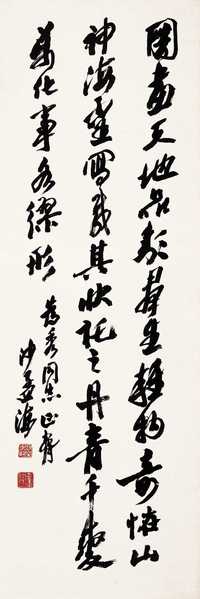 图画天地品类群生杂物奇怪山
神海灵写载其状托之丹青千变
万化事各缪形
为秀同志正腕
沙孟海